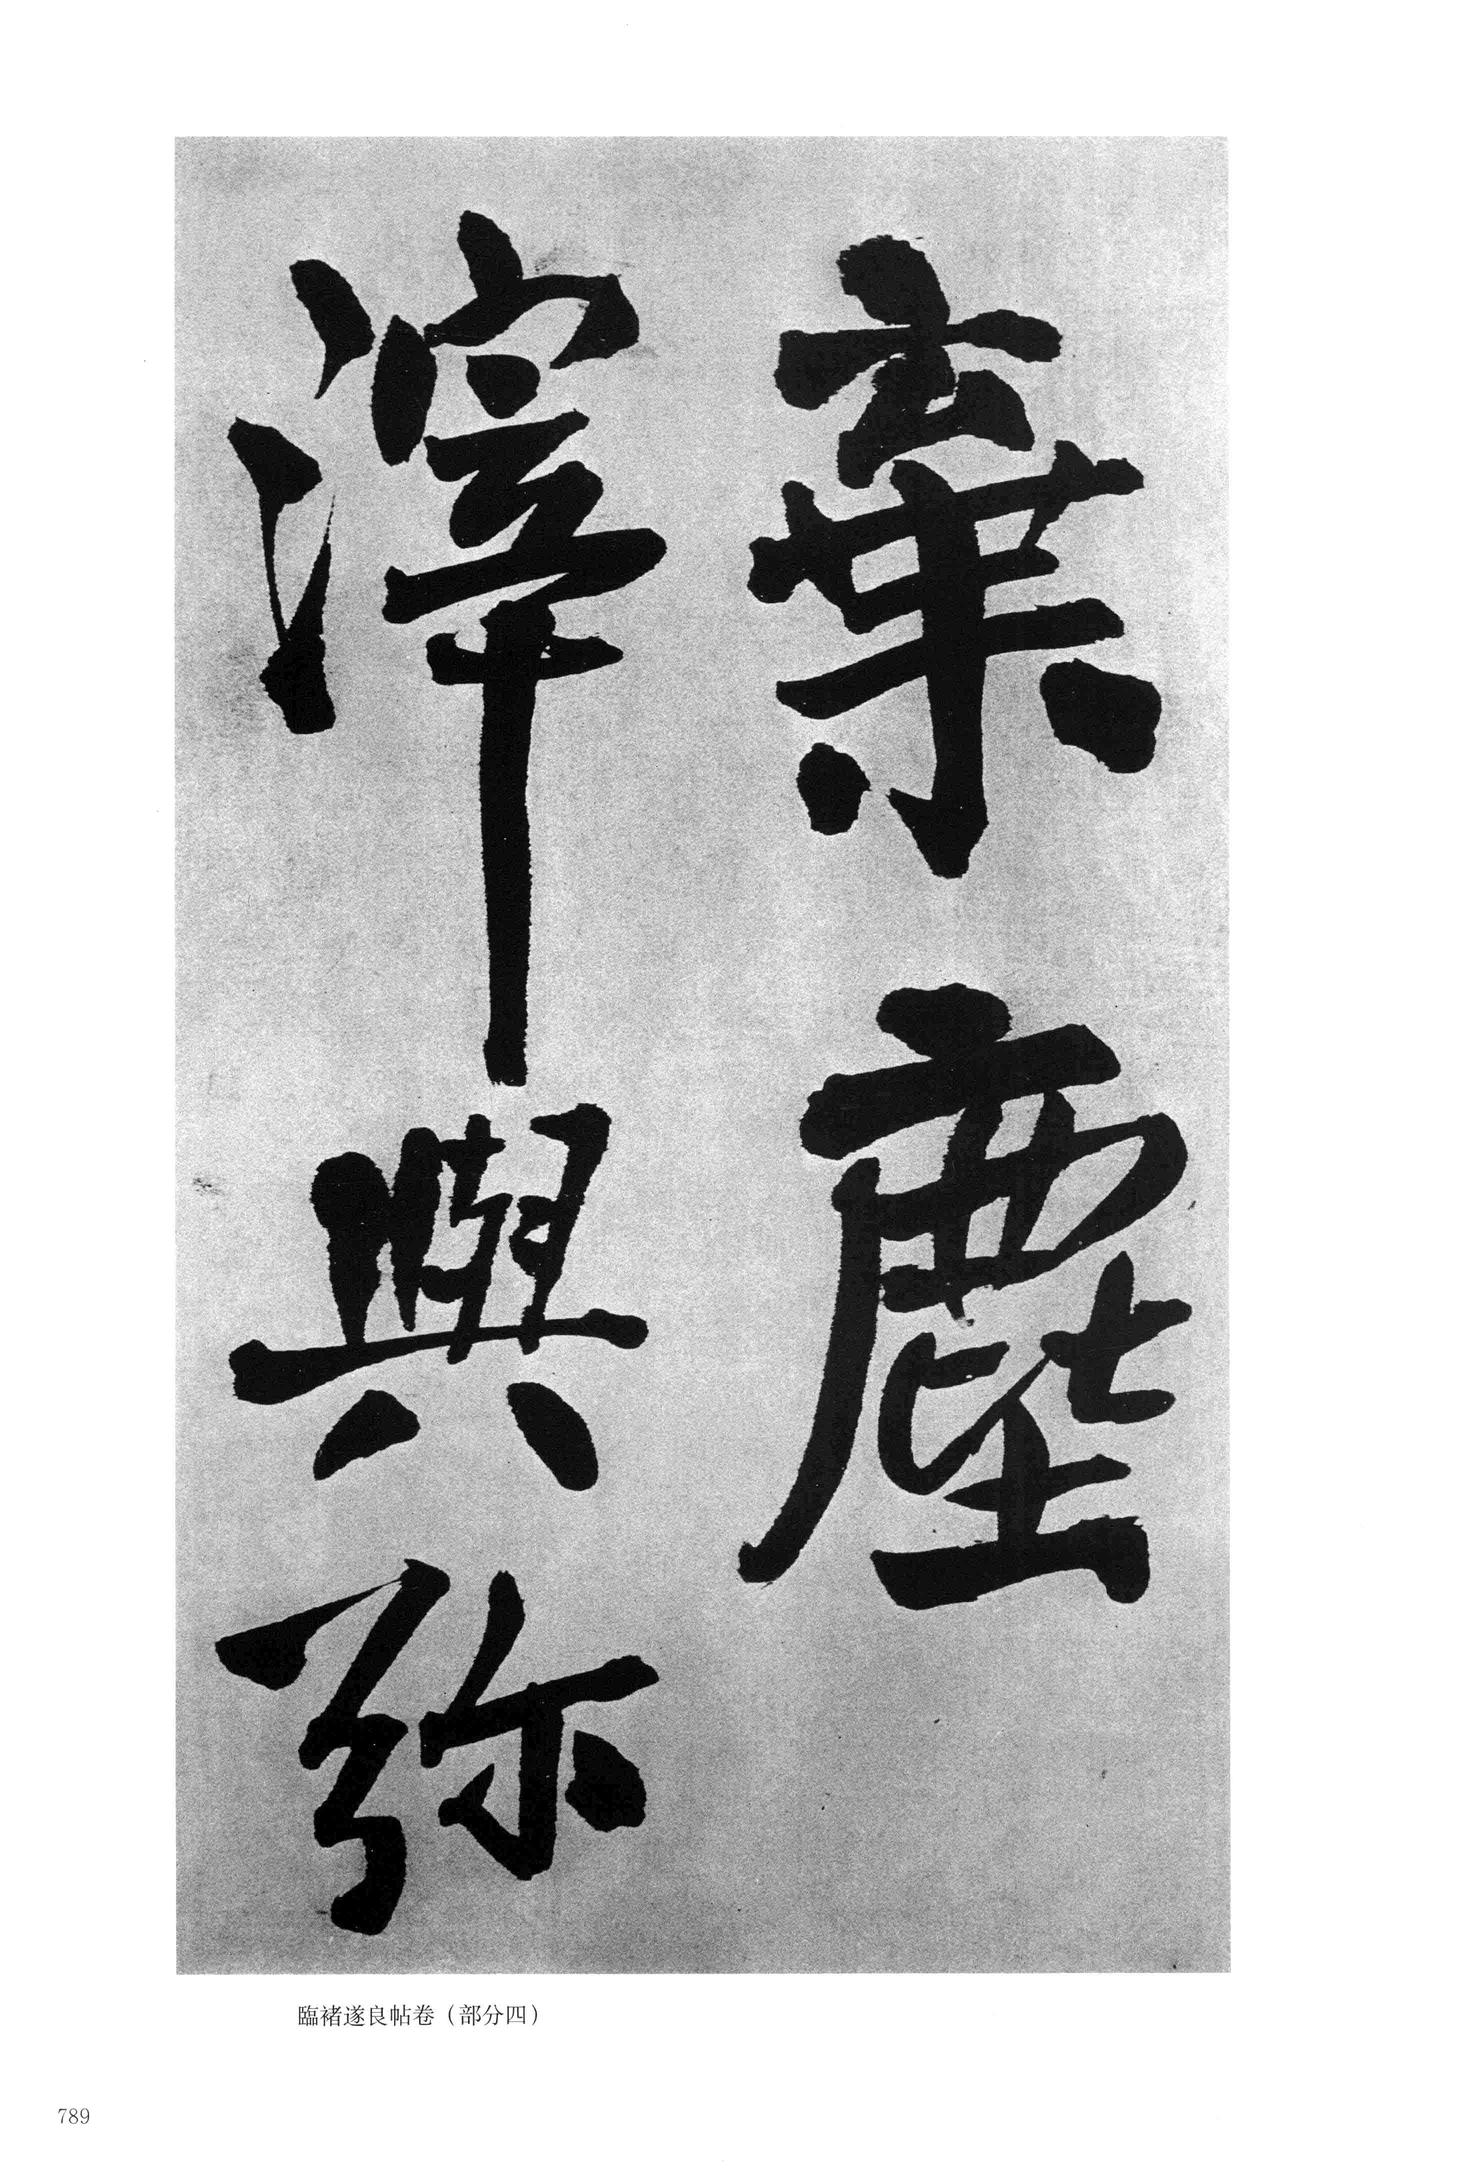 棄塵
滓與弥
臨褚遂良帖卷（部分四）
789